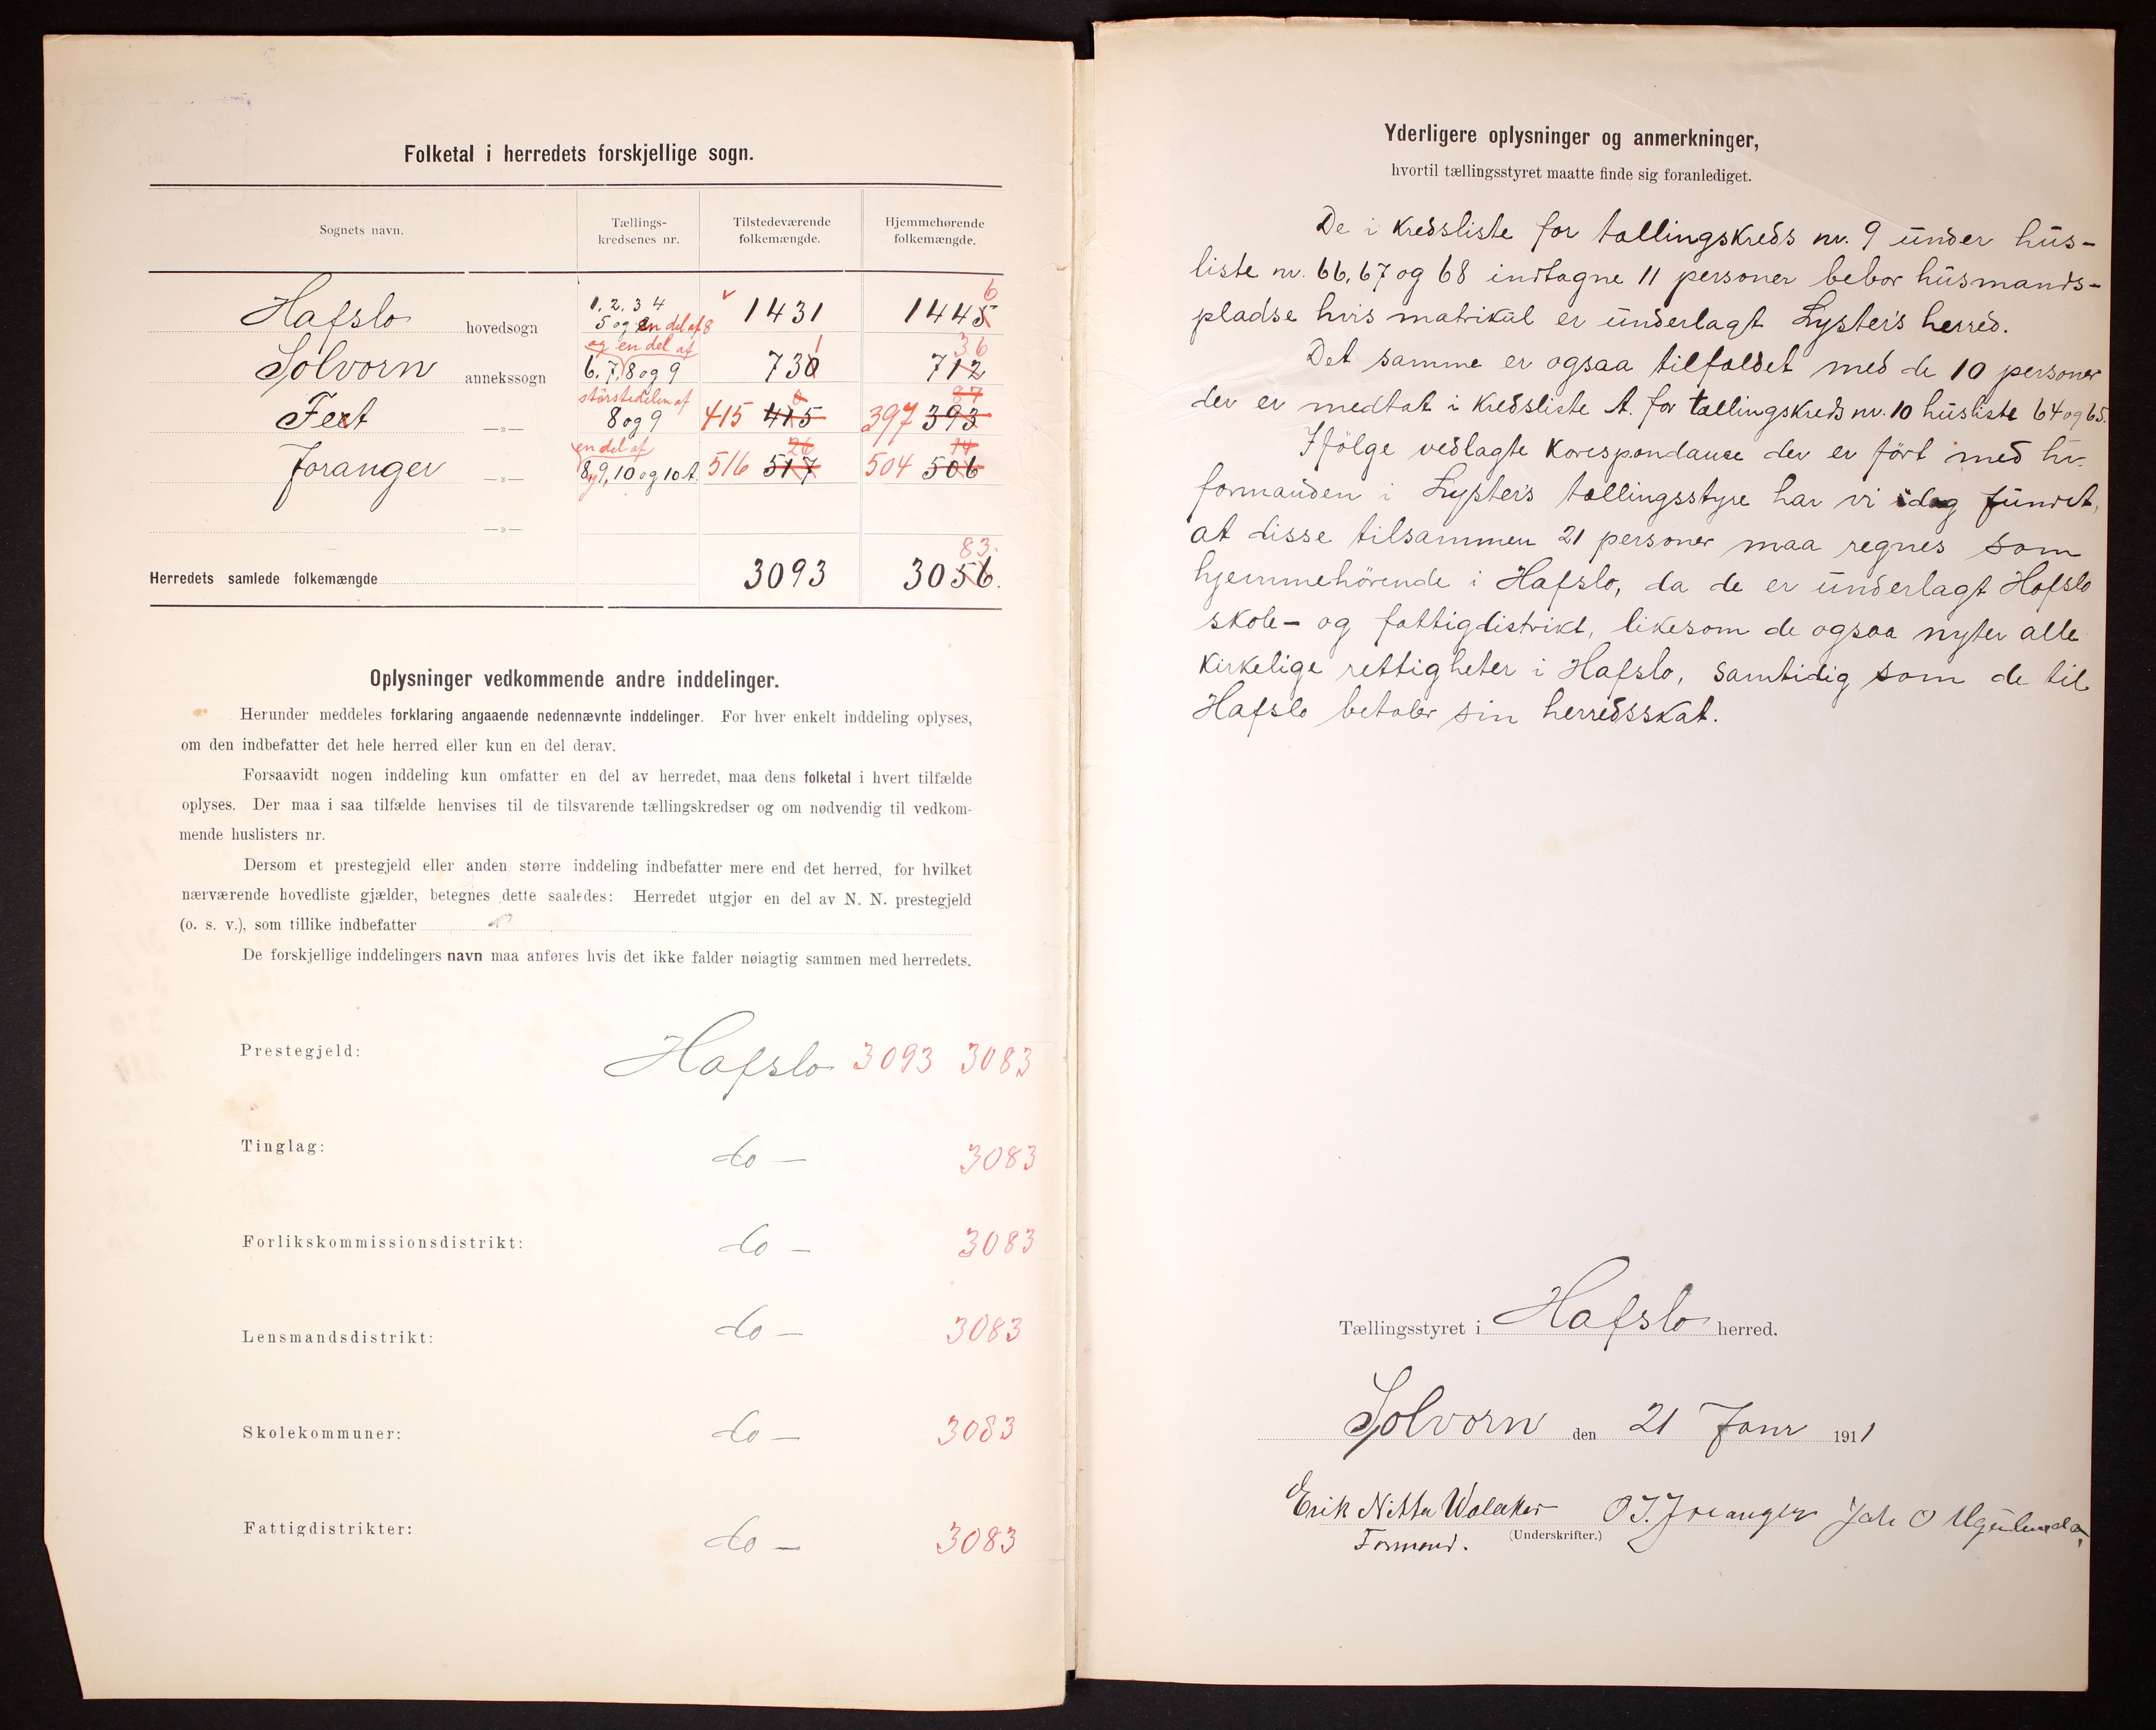 Folketal i herredets forskjellige sogn.
Sognets navn.
Tællings-
kredsenes nr.
Tilstedeværende
folkemængde.
Hjemmehørende
folkemængde.
6
Hafslo hovedsogn 1. 2. 3 4 1431 1445
5 og en del af 8
og en del af 1 36
Solvorn annekssogn 6. 7. 8 og 9 730 712
størstedelen af 87
Fet —»— 8 og 9 415 415 397 393
en del af 26 14
Joranger —»— 8, 9, 10 og 10 A. 516 517 504 506
—»—
83.
Herredets samlede folkemængde 3093 3056.
Oplysninger vedkommende andre inddelinger.
Herunder meddeles forklaring angaaende nedennævnte inddelinger. For hver enkelt inddeling oplyses,
om den indbefatter det hele herred eller kun en del derav.
Forsaavidt nogen inddeling kun omfatter en del av herredet, maa dens folketal i hvert tilfælde
oplyses. Der maa i saa tilfælde henvises til de tilsvarende tællingskredser og om nødvendig til vedkom-
mende huslisters nr.
Dersom et prestegjeld eller anden større inddeling indbefatter mere end det herred, for hvilket
nærværende hovedliste gjælder, betegnes dette saaledes: Herredet utgjør en del av N. N. prestegjeld
(o. s. v.), som tillike indbefatter
De forskjellige inddelingers navn maa anføres hvis det ikke falder nøiagtig sammen med herredets.
Prestegjeld: Hafslo 3093 3083
Tinglag: do — 3083
Forlikskommissionsdistrikt: do — 3083
Lensmandsdistrikt: do — 3083
Skolekommuner: do — 3083
Fattigdistrikter: do — 3083
Yderligere oplysninger og anmerkninger,
hvortil tællingsstyret maatte finde sig foranlediget.
De i kredsliste for tællingskreds nr. 9 under hus-
liste nr. 66, 67 og 68 indtagne 11 personer bebor husmands-
pladse hvis matrikul er underlagt Lyster's herred.
Det samme er ogsaa tilfældet med de 10 personer
der er medtat i kredsliste A. for tællingskreds nr. 10 husliste 64 og 65.
Ifölge vedlagte korespondanse der er fört med hr.
formanden i Lyster's tællingsstyre har vi idag fundet,
at disse tilsammen 21 personer maa regnes som
hjemmehörende i Hafslo, da de er underlagt Hafslo
skole- og fattigdistrikt, likesom de ogsaa nyter alle
kirkelige rettigheter i Hafslo, samtidig som de til
Hafslo betaler sin herredsskat.
Tællingsstyret i Hafslo herred.
Solvorn den 21 Janr 1911
Erik Nitter Walaker O J. Joranger Joh O
Formand. (Underskrifter.)